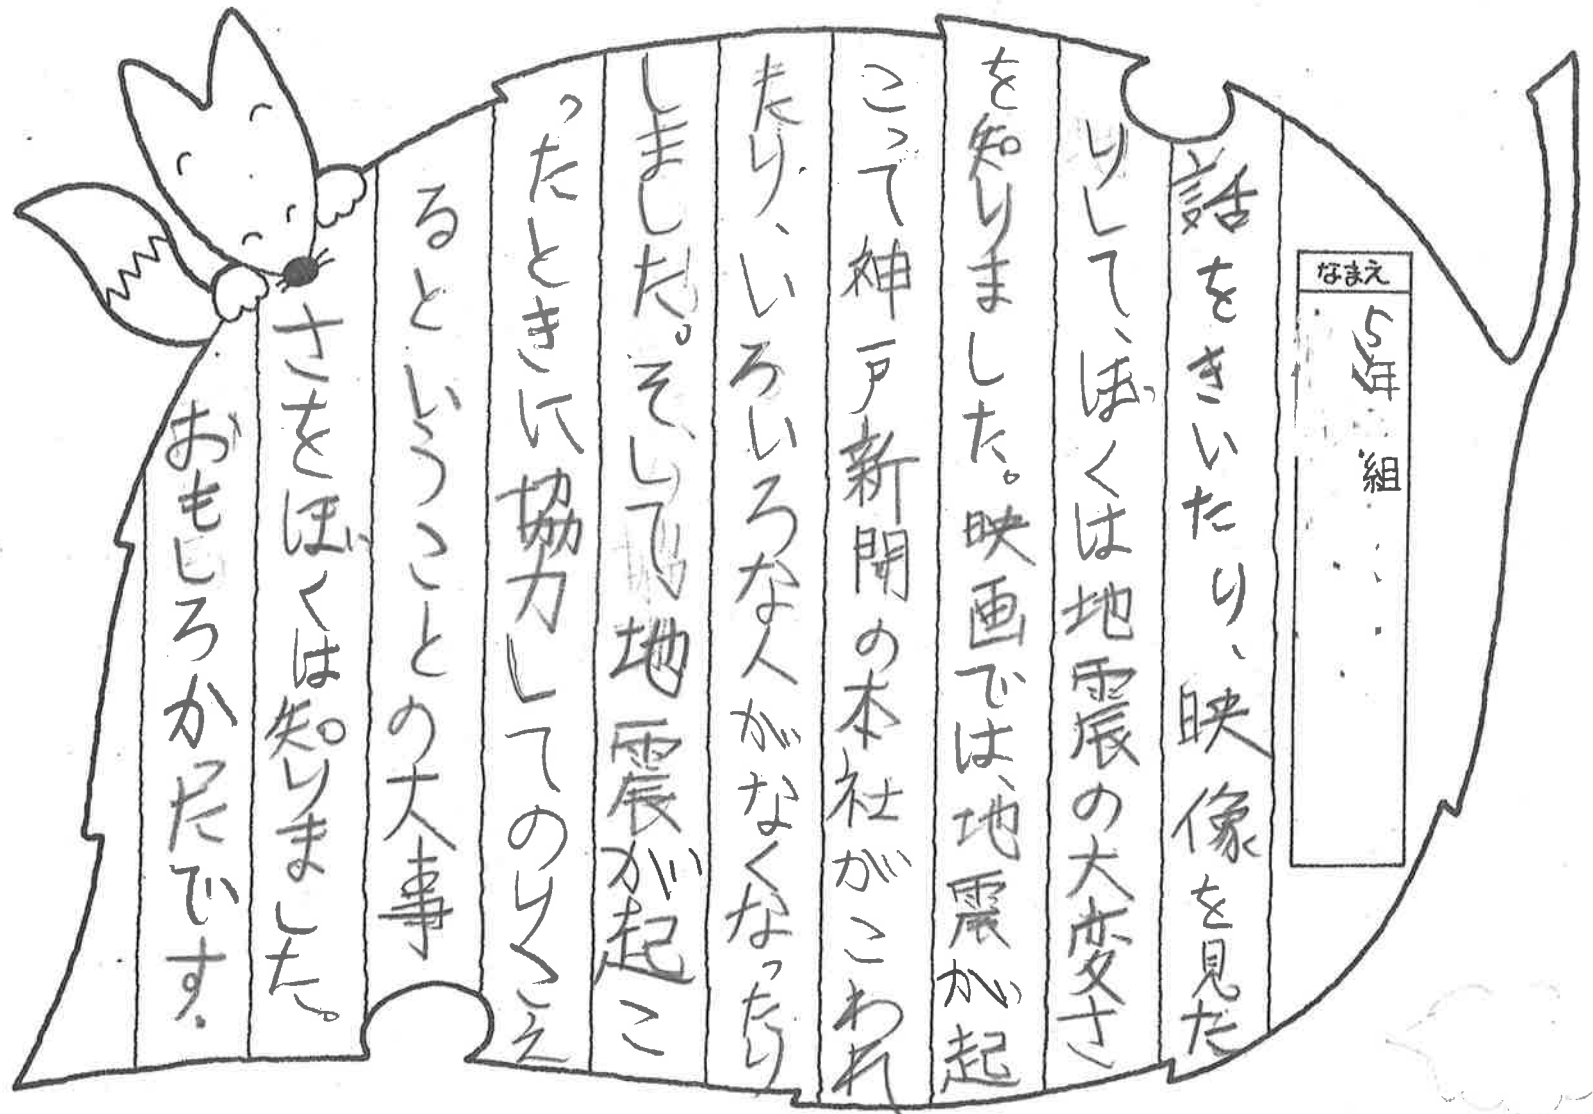 なまえ
5年 組
話をきいたり、映像を見た
りして、ぼくは地震の大変さ
を知りました。映画では、地震が起
こって神戸新聞の本社がこわれ
たり、いろいろな人がなくなったり
しました。そして地震が起こ
ったときに協力してのりこえ
るということの大事
さをぼくは知りました。
おもしろかったです。